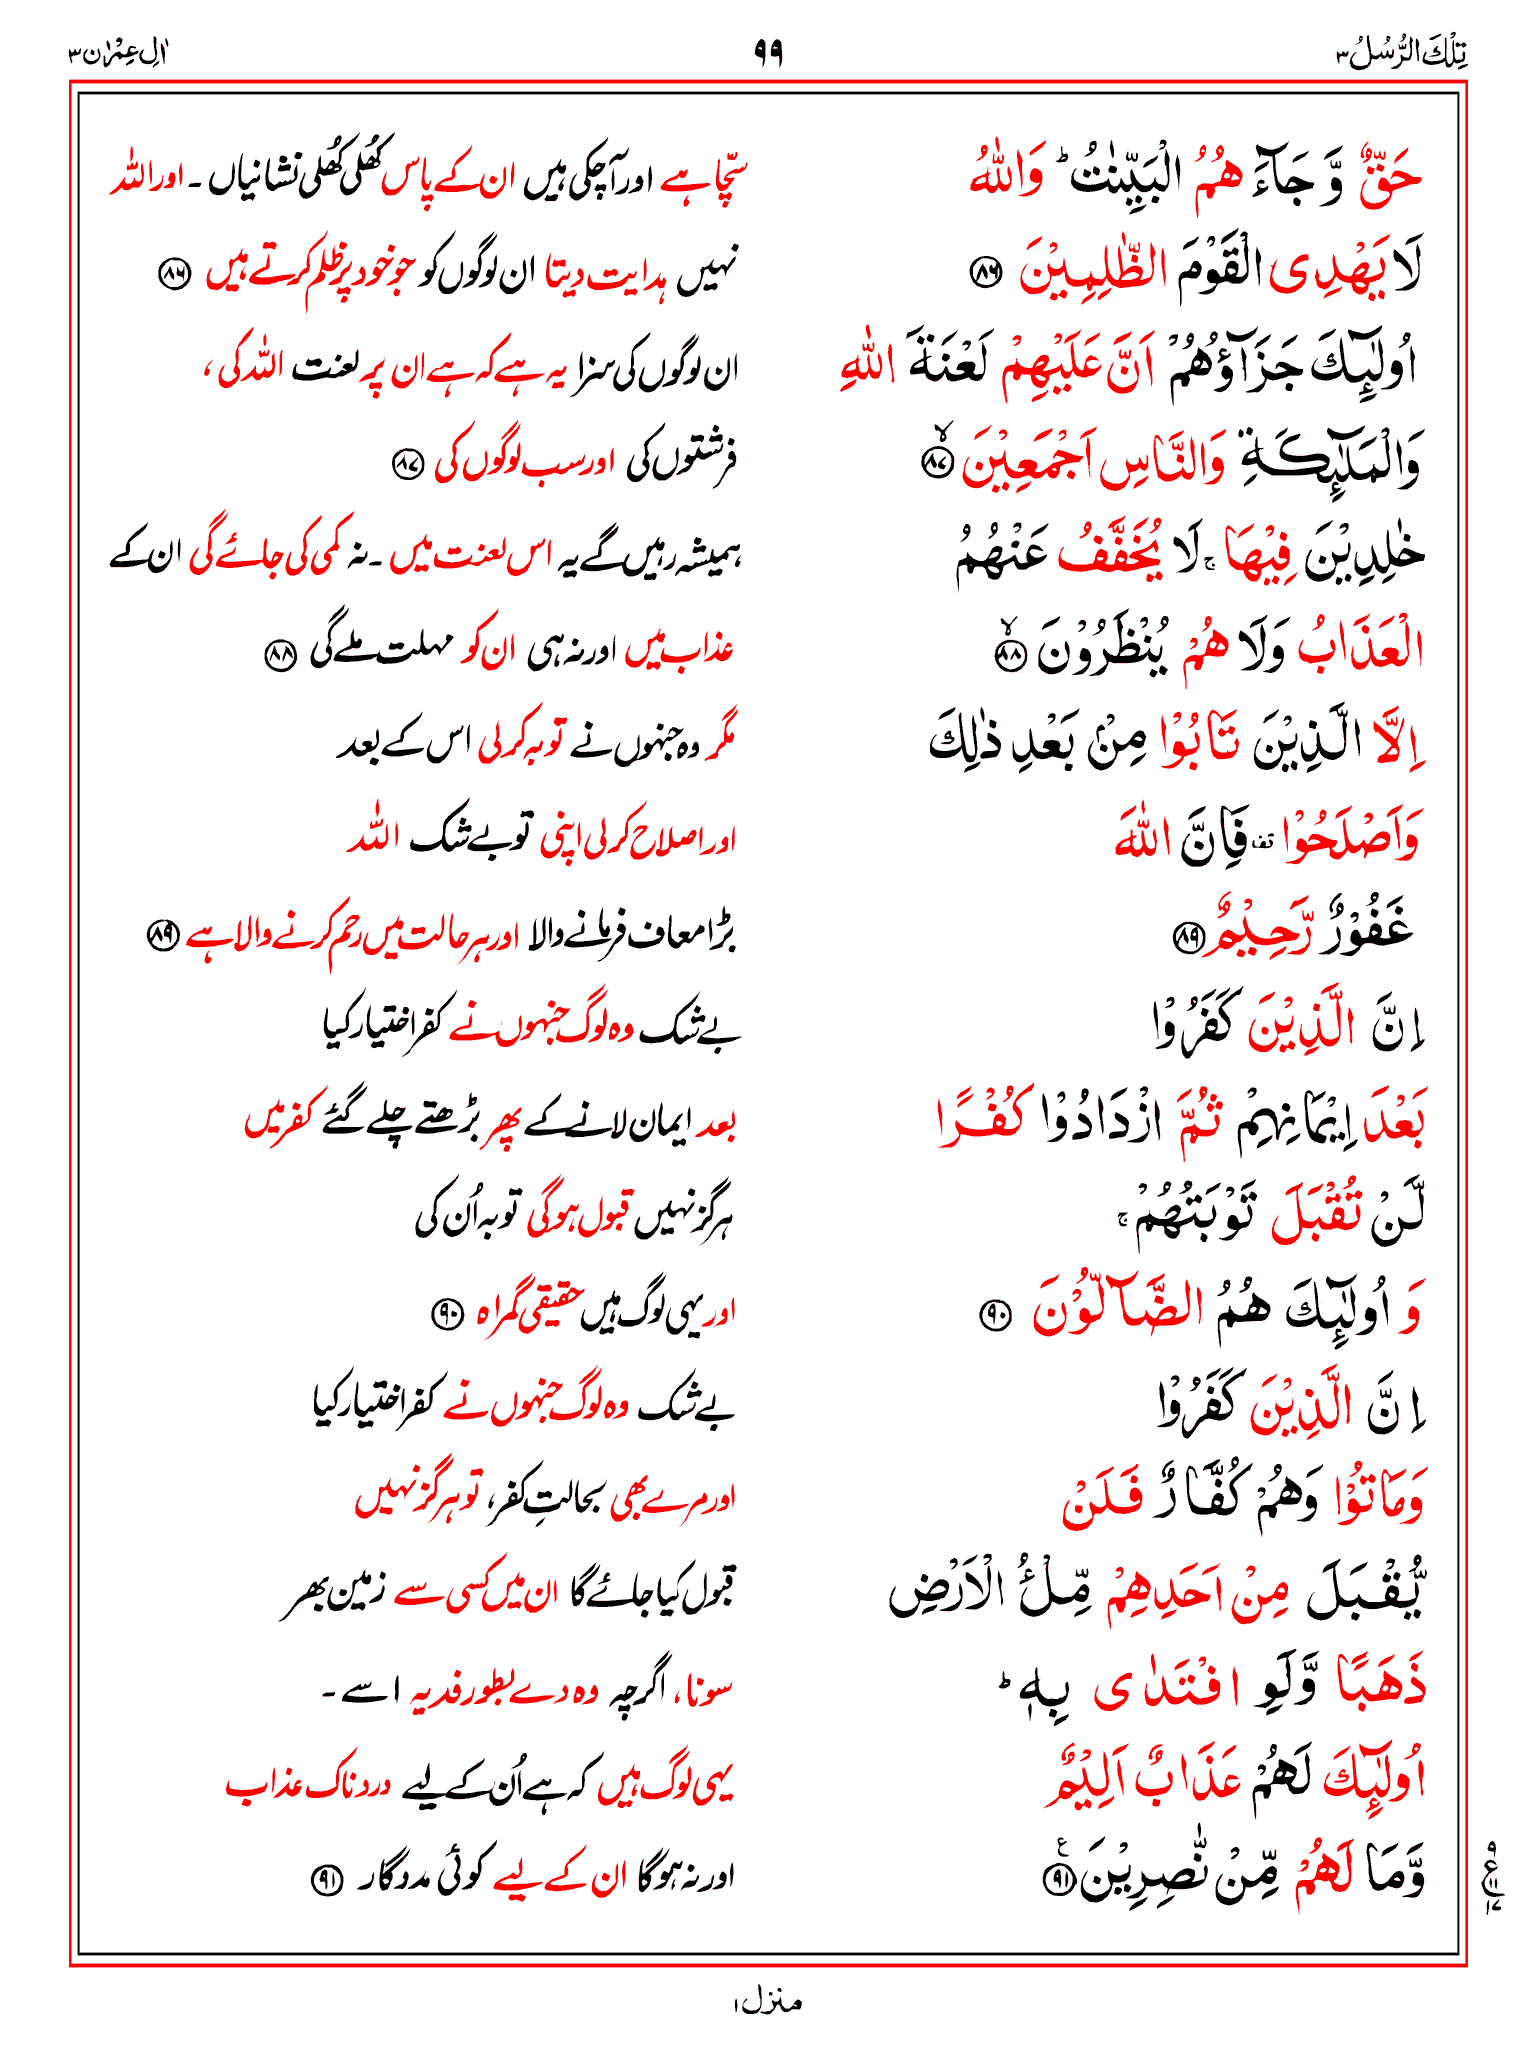 تِلْكَ الرُّسُلُ ۳ ۹۹ اٰلِ عِمْرٰن ۳
حَقٌّ وَّ جَآءَ هُمُ الْبَيِّنٰتُ ؕ وَاللّٰهُ سچّا ہے اور آ چکی ہیں ان کے پاس کھُلی کھُلی نشانیاں ۔ اور اللہ
لَا يَهْدِى الْقَوْمَ الظّٰلِمِيْنَ ۸۶ نہیں ہدایت دیتا ان لوگوں کو جو خود پر ظلم کرتے ہیں ۸۶
اُولٰٓئِكَ جَزَآؤُهُمْ اَنَّ عَلَيْهِمْ لَعْنَةَ اللّٰهِ ان لوگوں کی سزا یہ ہے کہ ہے ان پر لعنت اللہ کی ،
وَالْمَلٰٓئِكَةِ وَالنَّاسِ اَجْمَعِيْنَ ۙ ۸۷ فرشتوں کی اور سب لوگوں کی ۸۷
خٰلِدِيْنَ فِيْهَا ۚ لَا يُخَفَّفُ عَنْهُمُ ہمیشہ رہیں گے یہ اس لعنت میں ۔ نہ کمی کی جائے گی ان کے
الْعَذَابُ وَلَا هُمْ يُنْظَرُوْنَ ۙ ۸۸ عذاب میں اور نہ ہی ان کو مہلت ملے گی ۸۸
اِلَّا الَّذِيْنَ تَابُوْا مِنْۢ بَعْدِ ذٰلِكَ مگر وہ جنہوں نے توبہ کر لی اس کے بعد
وَاَصْلَحُوْا قف فَاِنَّ اللّٰهَ اور اصلاح کر لی اپنی تو بے شک اللہ
غَفُوْرٌ رَّحِيْمٌ ۸۹ بڑا معاف فرمانے والا اور ہر حالت میں رحم کرنے والا ہے ۸۹
اِنَّ الَّذِيْنَ كَفَرُوْا بے شک وہ لوگ جنہوں نے کفر اختیار کیا
بَعْدَ اِيْمَانِهِمْ ثُمَّ ازْدَادُوْا كُفْرًا بعد ایمان لانے کے پھر بڑھتے چلے گئے کفر میں
لَّنْ تُقْبَلَ تَوْبَتُهُمْ ۚ ہرگز نہیں قبول ہو گی توبہ اُن کی
وَ اُولٰٓئِكَ هُمُ الضَّآلُّوْنَ ۹۰ اور یہی لوگ ہیں حقیقی گمراہ ۹۰
اِنَّ الَّذِيْنَ كَفَرُوْا بے شک وہ لوگ جنہوں نے کفر اختیار کیا
وَمَاتُوْا وَهُمْ كُفَّارٌ فَلَنْ اور مرے بھی بحالتِ کفر، تو ہرگز نہیں
يُّقْبَلَ مِنْ اَحَدِهِمْ مِّلْءُ الْاَرْضِ قبول کیا جائے گا ان میں کسی سے زمین بھر
ذَهَبًا وَّلَوِ افْتَدٰى بِهٖ ؕ سونا، اگرچہ وہ دے بطور فدیہ اسے ۔
اُولٰٓئِكَ لَهُمْ عَذَابٌ اَلِيْمٌ یہی لوگ ہیں کہ ہے اُن کے لیے دردناک عذاب
وَّمَا لَهُمْ مِّنْ نّٰصِرِيْنَ ۹۱ ع اور نہ ہو گا ان کے لیے کوئی مددگار ۹۱
۹ ع ۱۱ ۱۷
منزل ۱